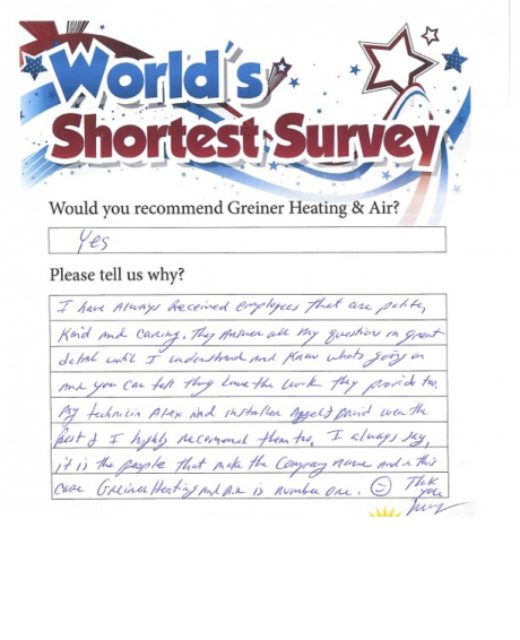 World's
Shortest Survey
Would you recommend Greiner Heating & Air?
Yes
Please tell us why?
I have always received employees that are polite,
Kind and caring. They answer all my questions in great
detail until I understand and know whats going on
and you can tell they love the work they provide too.
My technicin Alex and installer David were the
best & I highly recommend them too, I always say,
it is the people that make the Company name and in this
case Greiner Heating and Air is number one. ☺ Thk
you